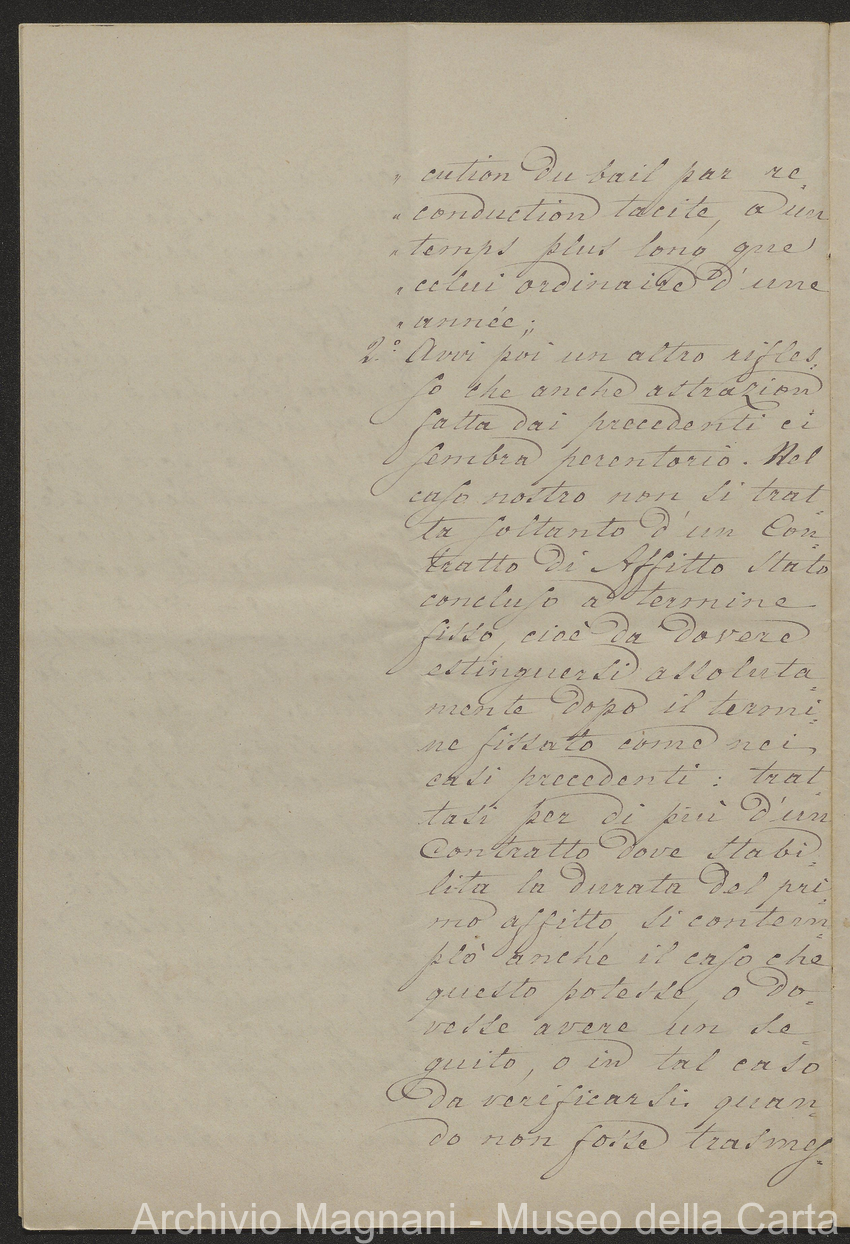 " cution du bail par re
" conduction tacite, a un
" temps plus long que
" celui ordinaire d'une
" année;
2.° Avvi poi un altro rifles-
so che anche astrazion
fatta dai precedenti ci
sembra perentorio. Nel
caso nostro non si trat-
ta soltanto d'un Con-
tratto di Affitto stato
concluso a termine
fisso, cioè da dovere
estinguersi assoluta-
mente dopo il termi-
ne fissato come nei
casi precedenti: trat-
tasi per di più d'un
Contratto dove stabi-
lita la durata del pri-
mo affitto, si contem-
plò anche il caso che
questo potesse, o do-
vesse avere un se-
guito, o in tal caso
da verificarsi quan-
do non fosse trasmes-
Archivio Magnani - Museo della Carta